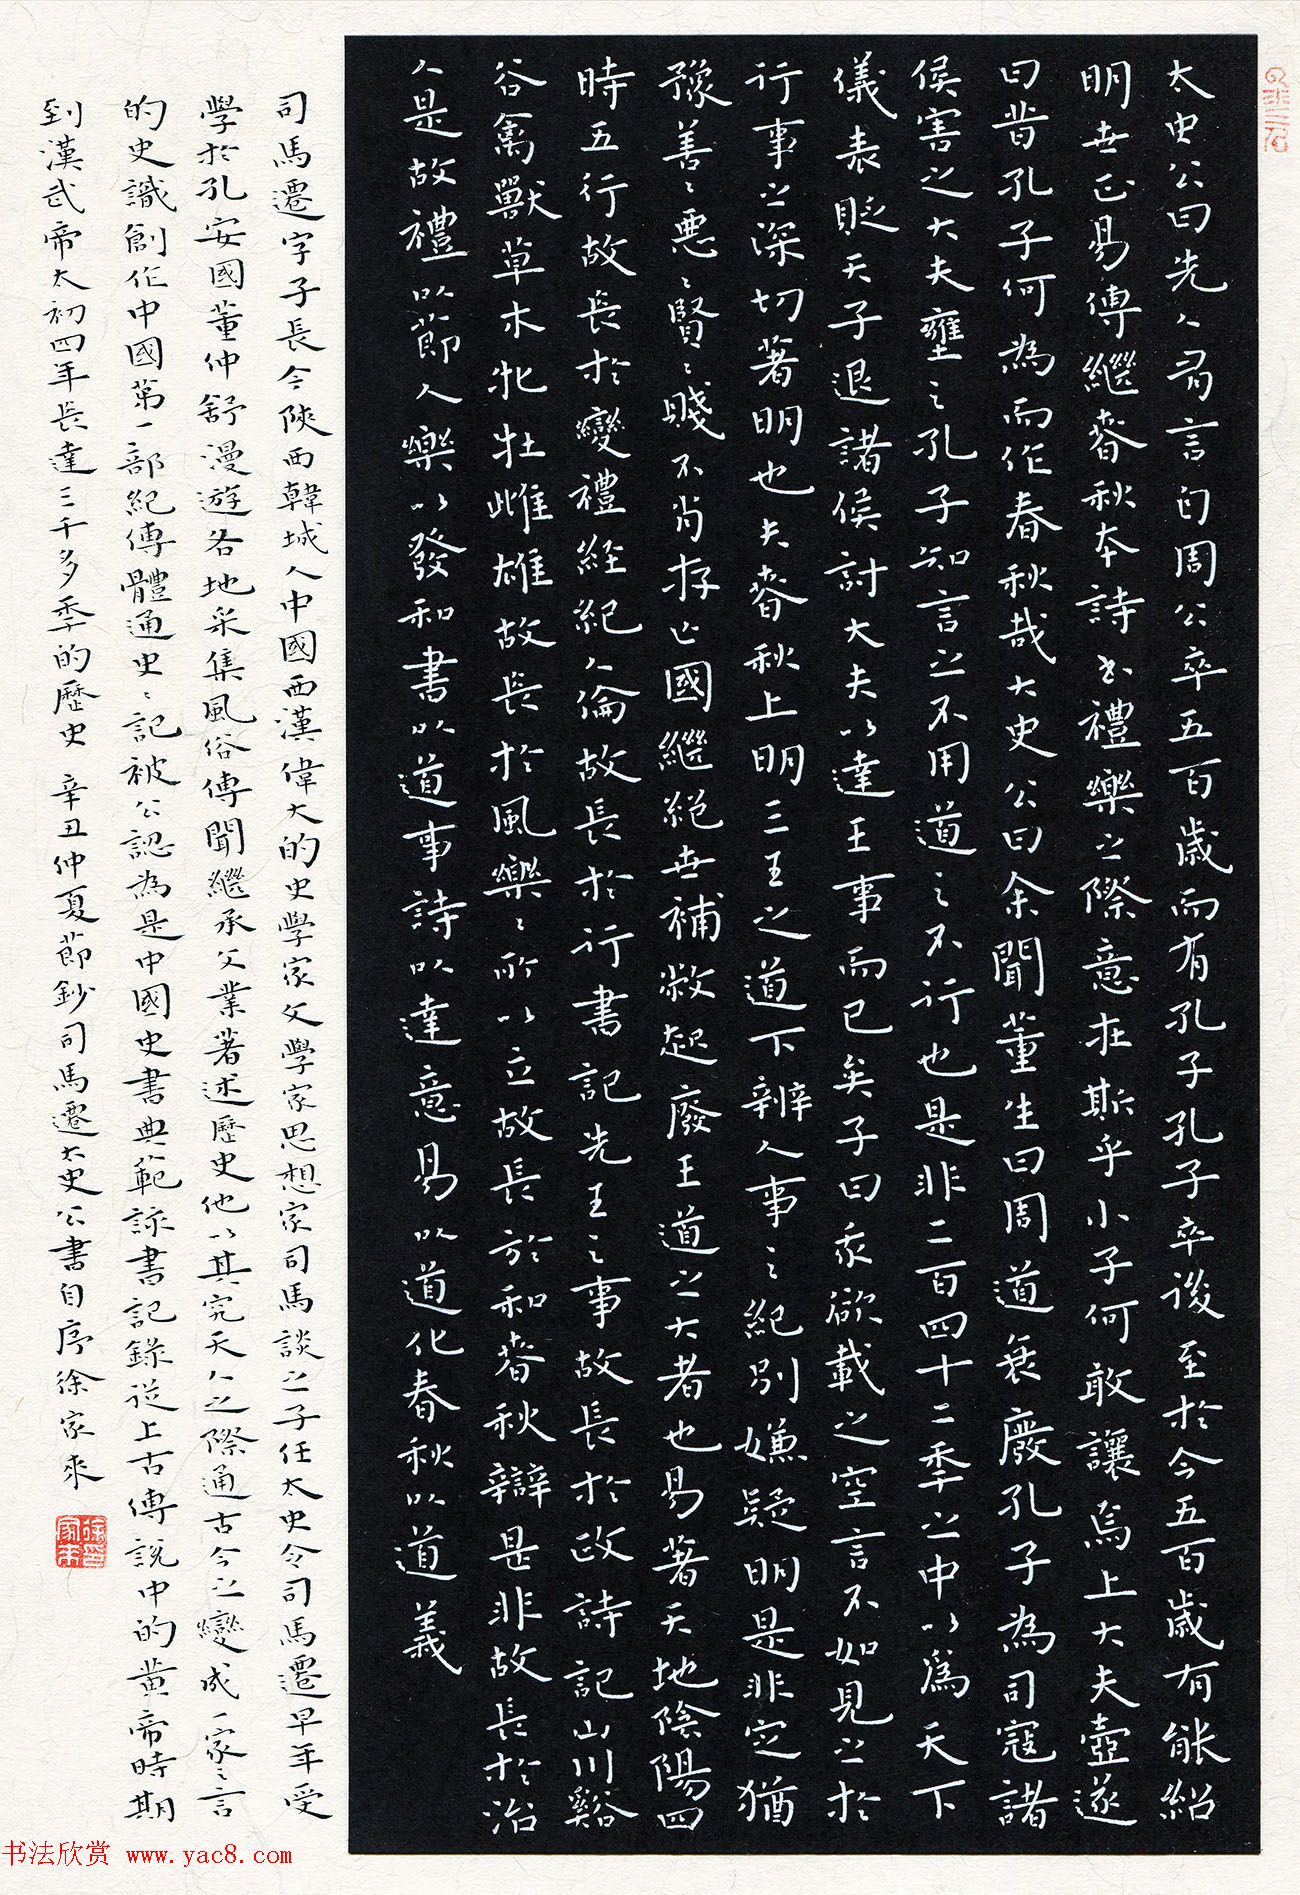 太史公曰先〻有言自周公卒五百歲而有孔子孔子卒後至於今五百歲有能紹
明世正易傳繼春秋本詩書禮樂之際意在斯乎小子何敢讓焉上大夫壺遂
曰昔孔子何為而作春秋哉大史公曰余聞董生曰周道衰廢孔子為司寇諸
侯害之大夫壅之孔子知言之不用道之不行也是非二百四十二季之中以為天下
儀表貶天子退諸侯討大夫以達王事而已矣子曰我欲載之空言不如見之於
行事之深切著明也夫春秋上明三王之道下辨人事之紀別嫌疑明是非定猶
豫善〻惡〻賢〻賤不肖存亡國繼絕世補敝起廢王道之大者也易著天地陰陽四
時五行故長於變禮經紀人倫故長於行書記先王之事故長於政詩記山川谿
谷禽獸草木牝牡雌雄故長於風樂〻所以立故長於和春秋辯是非故長於治
人是故禮以節人樂以發和書以道事詩以達意易以道化春秋以道義
司馬遷字子長今陝西韓城人中國西漢偉大的史學家文學家思想家司馬談之子任太史令司馬遷早年受
學於孔安國董仲舒漫遊各地采集風俗傳聞繼承父業著述歷史他以其究天人之際通古今之變成一家之言
的史識創作中國第一部紀傳體通史〻記被公認為是中國史書典範該書記錄從上古傳說中的黄帝時期
到漢武帝太初四年長達三千多季的歷史 辛丑仲夏節鈔司馬遷太史公書自序徐家來
徐家來印
书法欣赏 www.yac8.com